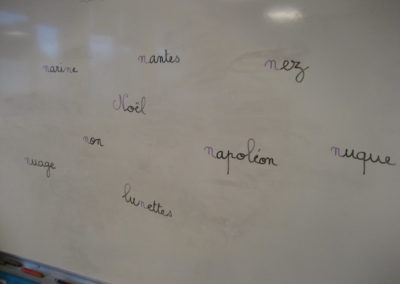 nantes
nez
narine
Noël
non
napoléon
nuque
nuage
lunettes